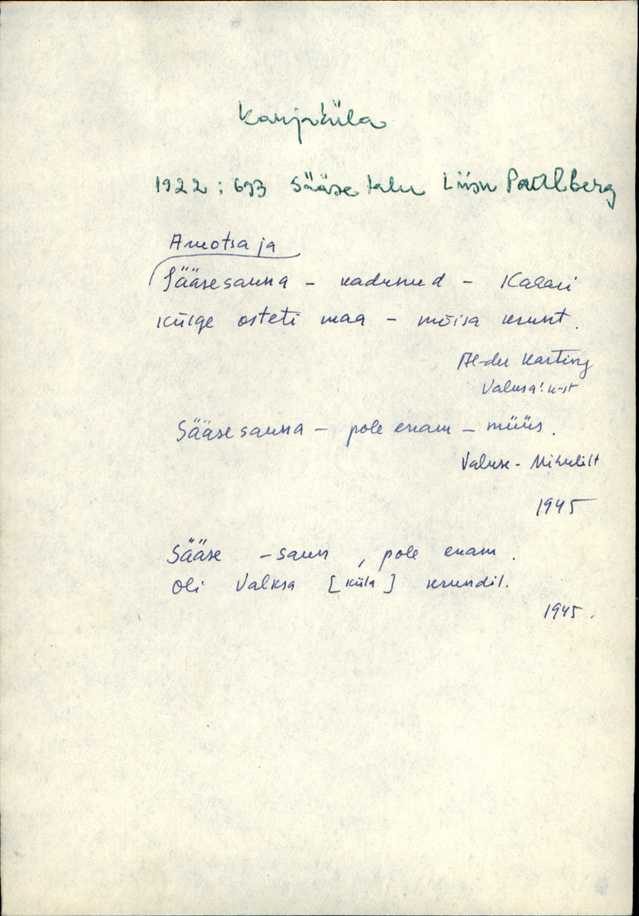 Karjaküla
1922 : 693 Sääse talu Liisu Paalberg
Ametsaja
Sääsesauna - kadunud - Kasari
külge osteti maa - mõisa krunt.
Al-der Karting
Sääse sauna - pole enam - müüs.
Valuse - Mihklilt
1945
Sääse - saun, pole enam.
Oli Valksa [küla] krundil.
1945.